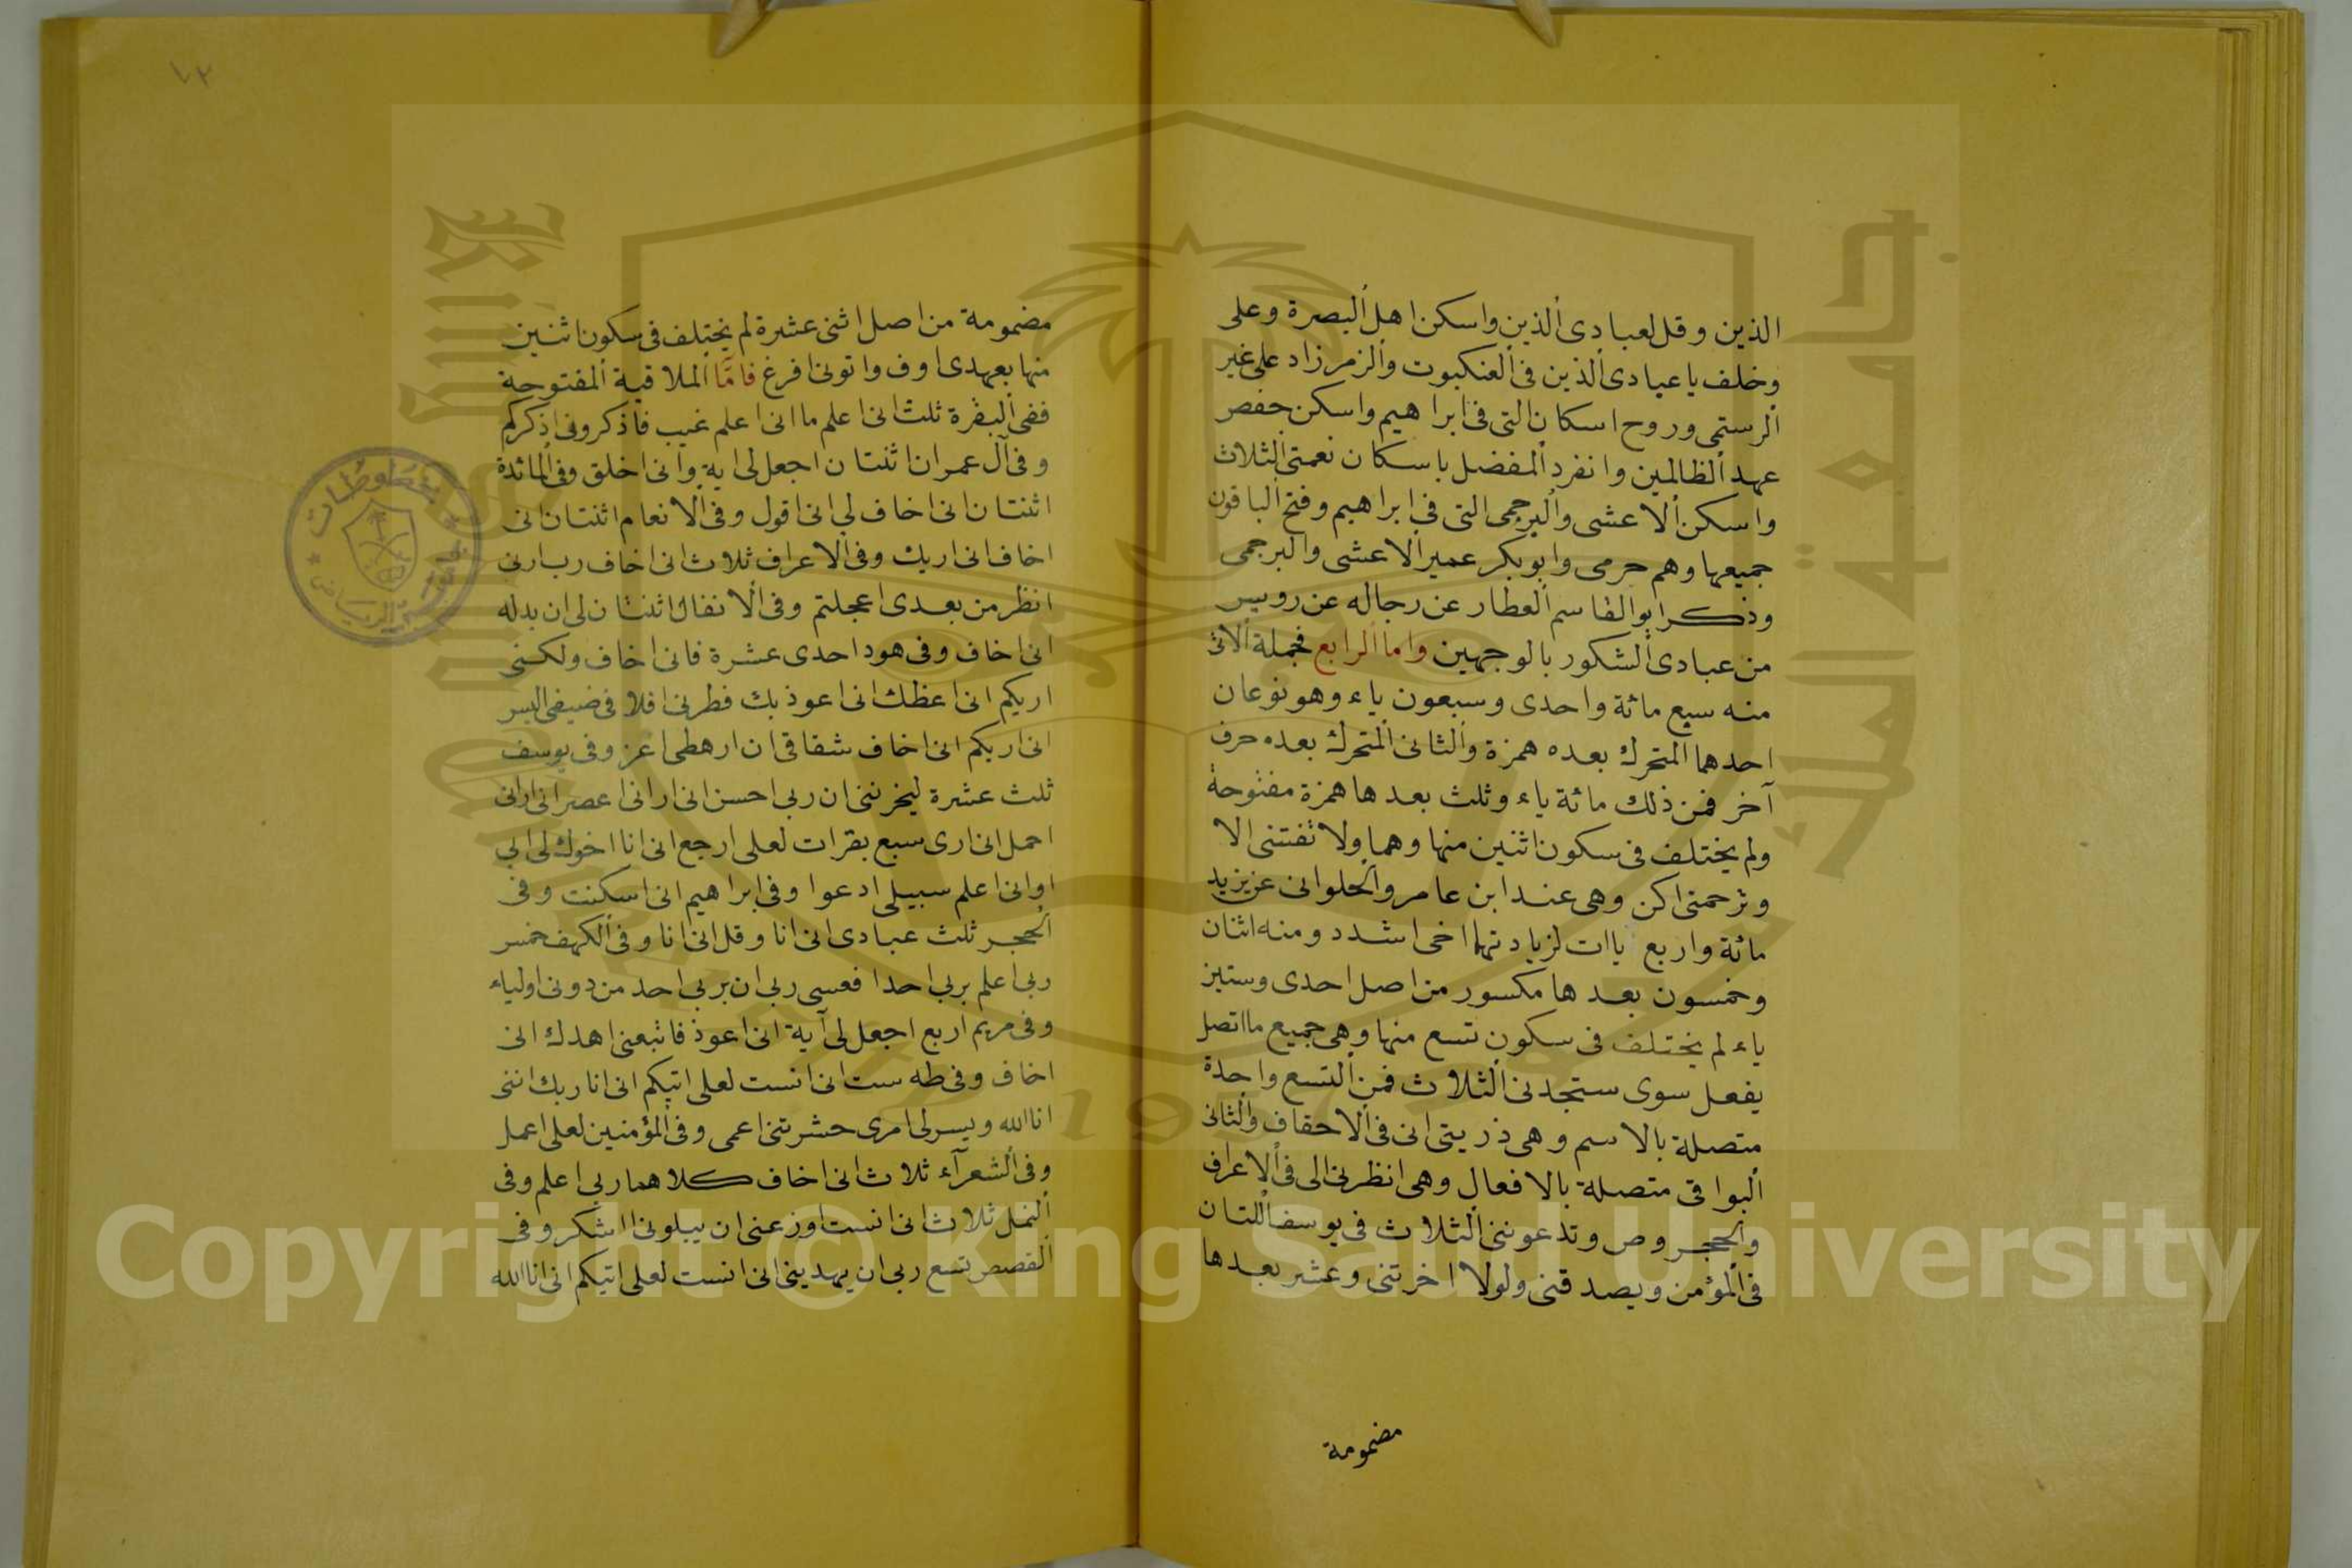 الذين وقل لعبادى الذين واسكن اهل البصرة وعلى
وخلف يا عبادى الذين فى العنكبوت والزمر زاد على غير
الرستمى وروح اسكان التى فى ابراهيم واسكن حفص
عهد الظالمين وانفرد المفضل باسكان نعمتى الثلاث
واسكن الاعشى والبرجمى التى فى ابراهيم وفتح الباقون
جميعها وهم حرمى وابوبكر عمير الاعشى والبرجمى
وذكر ابو القاسم العطار عن رجاله عن رويس
من عبادى الشكور بالوجهين واما الرابع فجملة الاتى
منه سبع مائة واحدى وسبعون ياء وهو نوعان
احدهما المتحرك بعده همزة والثانى المتحرك بعده حرف
آخر فمن ذلك مائة ياء وثلث بعدها همزة مفتوحة
ولم يختلف فى سكون اثنين منها وهما ولا تفتنى الا
وترحمنى اكن وهى عند ابن عامر والحلوانى عن يزيد
مائة واربع ياات لزيادتهما اخى اشدد ومنه اثنان
وخمسون بعدها مكسور من اصل احدى وستين
ياء لم يختلف فى سكون تسع منها وهى جميع ما اتصل
يفعل سوى ستجدنى الثلاث فمن التسع واحدة
متصلة بالاسم وهى ذريتى انى فى الاحقاف والثانى
البواقى متصلة بالافعال وهى انظرنى الى فى الاعراف
والحجر وص وتدعوننى الثلاث فى يوسف اللتان
فى المؤمن ويصدقنى ولولا اخرتنى وعشر بعدها
مضمومة
مضمومة من اصل اثنى عشرة لم يختلف فى سكون اثنين
منها بعهدى اوف واتونى افرغ فامّا الملاقية المفتوحة
ففى البقرة ثلث انى اعلم ما انى اعلم غيب فاذكرونى اذكركم
وفى آل عمران اثنتان اجعل لى اية وانى اخلق وفى المائدة
اثنتان انى اخاف لى ان اقول وفى الانعام اثنتان انى
اخاف انى اريك وفى الاعراف ثلاث انى اخاف رب ارنى
انظر من بعدى اعجلتم وفى الانفال اثنتان لى ان بدله
انى اخاف وفى هود احدى عشرة فانى اخاف ولكنى
اريكم انى اعظك انى اعوذ بك فطرنى افلا فى ضيفى اليس
انى اريكم انى اخاف شقاقى ان ارهطى اعز وفى يوسف
ثلث عشرة ليحزننى ان ربى احسن انى ارانى اعصر انى ارانى
احمل انى ارى سبع بقرات لعلى ارجع انى انا اخوك لى ابى
اوانى اعلم سبيلى ادعوا وفى ابراهيم انى اسكنت وفى
الحجر ثلث عبادى انى انا وقل انى انا وفى الكهف خمس
ربى اعلم بربى احدا فعسى ربى ان بربى احد من دونى اولياء
وفى مريم اربع اجعل لى آية انى اعوذ فاتبعنى اهدك انى
اخاف وفى طه ست انى انست لعلى اتيكم انى انا ربك اننى
انا الله ويسر لى امرى حشرتنى اعمى وفى المؤمنين لعلى اعمل
وفى الشعرآء ثلاث انى اخاف كلاهما ربى اعلم وفى
النمل ثلاث انى انست اوزعنى ان يبلونى ااشكر وفى
القصص تسع ربى ان يهدينى انى انست لعلى اتيكم انى انا الله
Copyright © King Saud University